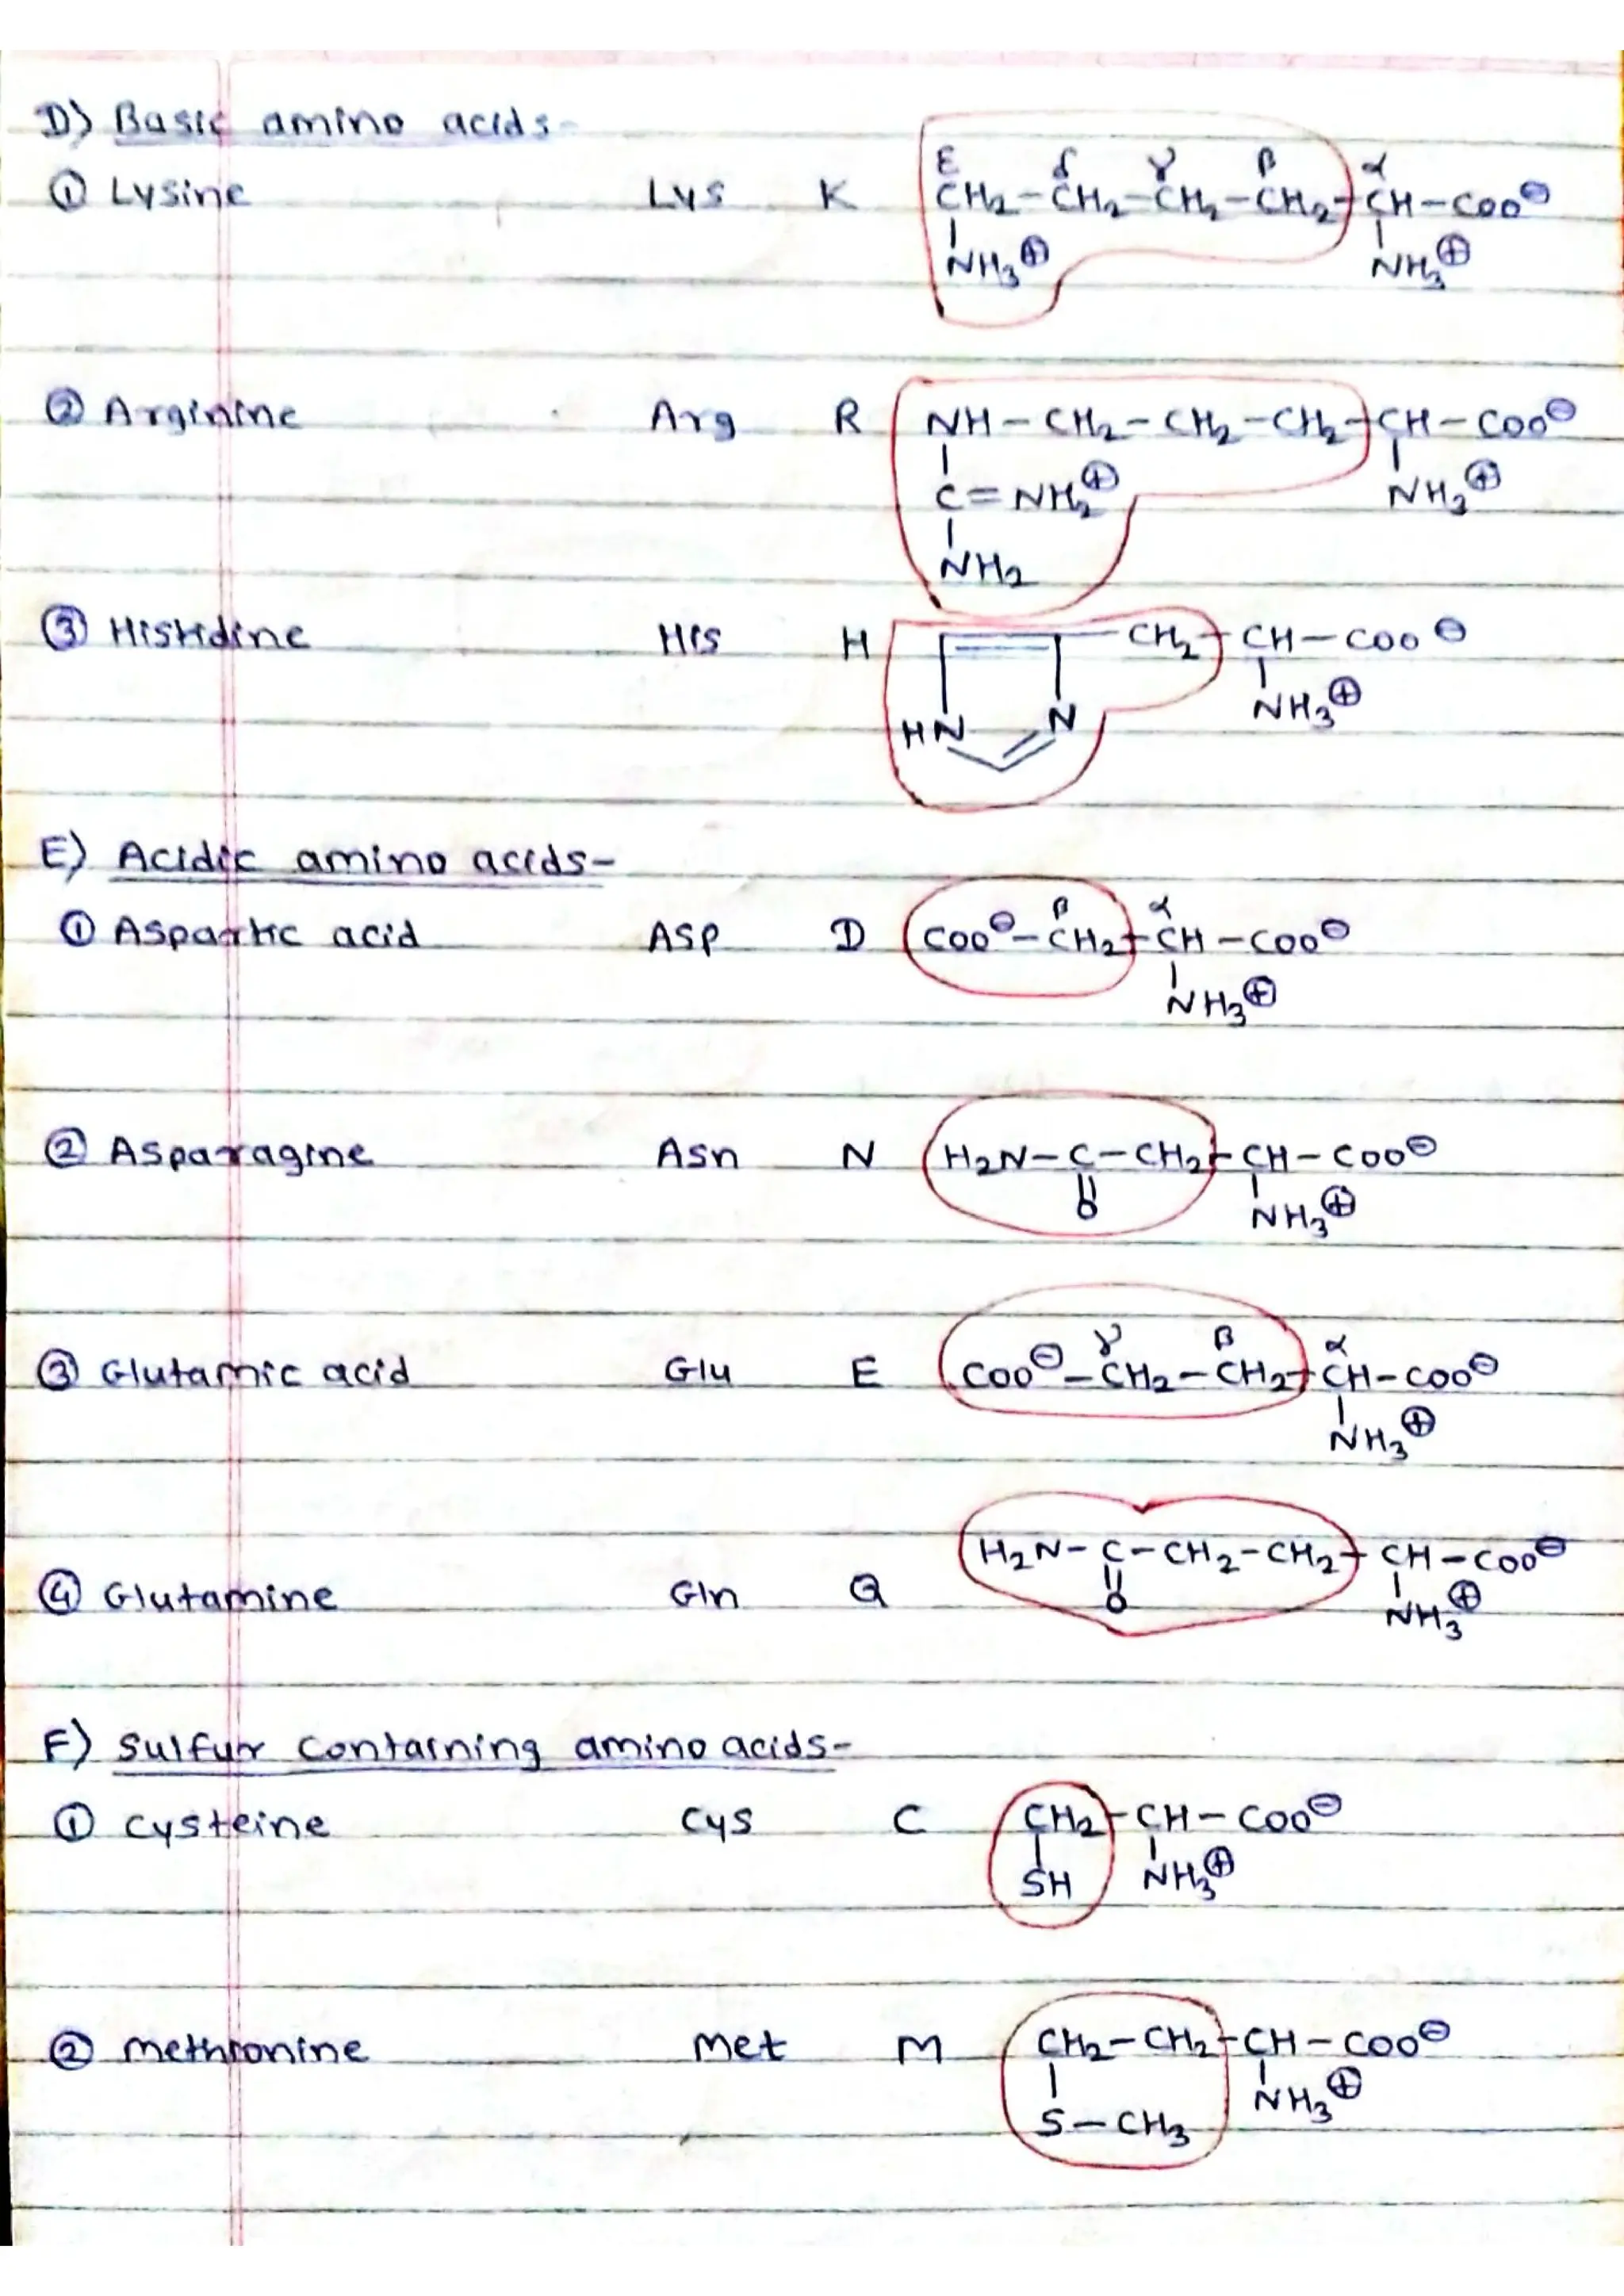 D) Basic amino acids-
ε δ γ β α
① Lysine Lys K CH₂-CH₂-CH₂-CH₂-CH-COO⊖
NH₃⊕ NH₃⊕
② Arginine Arg R NH-CH₂-CH₂-CH₂-CH-COO⊖
C=NH₂⊕ NH₃⊕
NH₂
③ Histidine His H CH₂-CH-COO⊖
HN N NH₃⊕
E) Acidic amino acids-
β α
① Aspartic acid Asp D COO⊖-CH₂-CH-COO⊖
NH₃⊕
② Asparagine Asn N H₂N-C-CH₂-CH-COO⊖
O NH₃⊕
γ β α
③ Glutamic acid Glu E COO⊖-CH₂-CH₂-CH-COO⊖
NH₃⊕
H₂N-C-CH₂-CH₂-CH-COO⊖
④ Glutamine Gln Q O NH₃⊕
F) Sulfur containing amino acids-
① Cysteine Cys C CH₂-CH-COO⊖
SH NH₃⊕
② Methionine Met M CH₂-CH₂-CH-COO⊖
NH₃⊕
S-CH₃